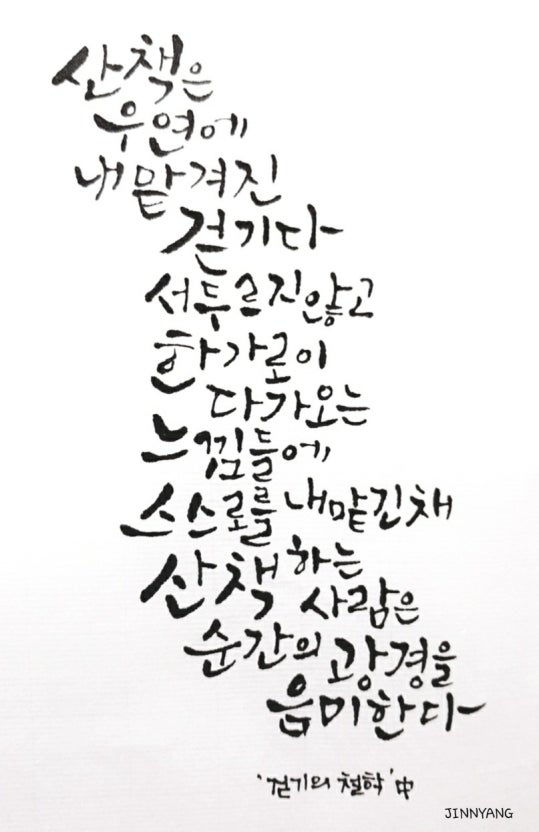 산책은
우연에
내맡겨진
걷기다
서두르지않고
한가로이
다가오는
느낌들에
스스로를 내맡긴채
산책하는
사람은
순간의 광경을
음미한다
'걷기의 철학'中
JINNYANG